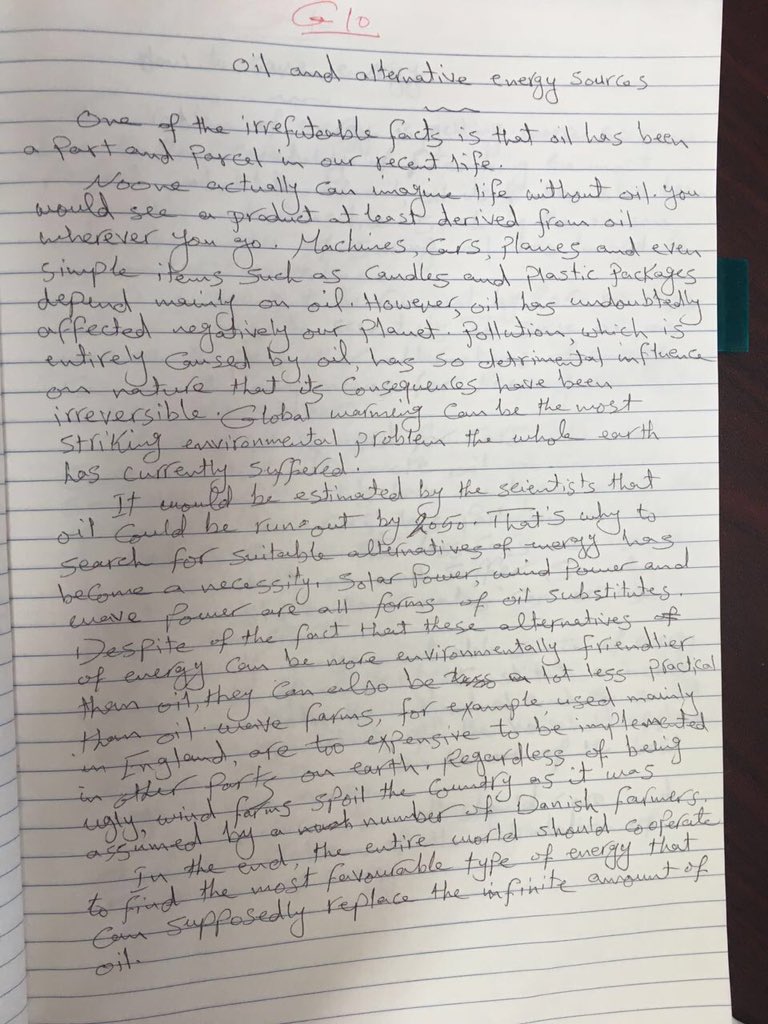 G10
Oil and alternative energy sources
One of the irrefuteable facts is that oil has been
a part and parcel in our recent life.
Noone actually can imagine life without oil. You
would see a product at least derived from oil
wherever you go. Machines, Cars, Planes and even
simple items such as Candles and plastic packages
depend mainly on oil. However, oil has undoubtedly
affected negatively our planet. Pollution, which is
entirely caused by oil, has so detrimental influence
on nature that its consequences have been
irreversible. Global warming can be the most
striking environmental problem the whole earth
has currently suffered.
It would be estimated by the scientists that
oil could be run out by 2050. That's why to
search for suitable alternatives of energy has
become a necessity. Solar power, wind power and
wave power are all forms of oil substitutes.
Despite of the fact that these alternatives of
of energy can be more environmentally friendlier
than oil, they can also be less a lot less practical
than oil. wave farms, for example, used mainly
in England, are too expensive to be implemented
in other parts on earth. Regardless of being
ugly, wind farms spoil the country as it was
assumed by a number of Danish farmers.
In the end, the entire world should cooperate
to find the most favourable type of energy that
can supposedly replace the infinite amount of
oil.